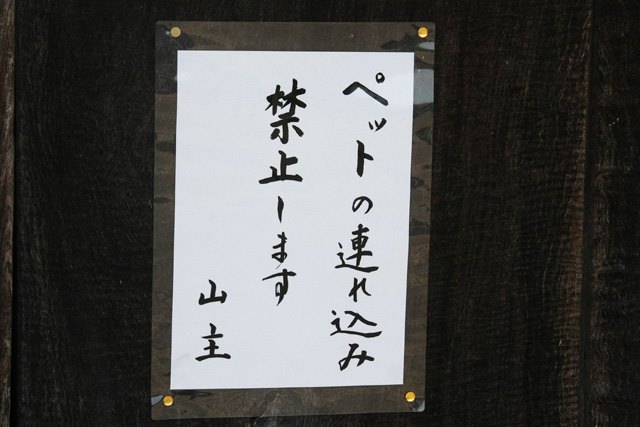 ペットの連れ込み
禁止します
山主